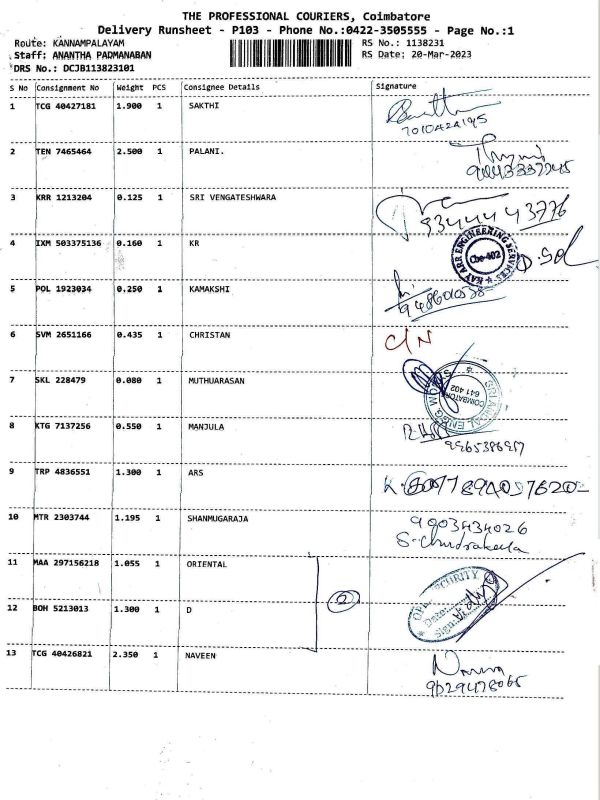 THE PROFESSIONAL COURIERS, Coimbatore
Delivery Runsheet - P103 - Phone No.:0422-3505555 - Page No.:1
Route: KANNAMPALAYAM RS No.: 1138231
Staff: ANANTHA PADMANABAN RS Date: 20-Mar-2023
DRS No.: DCJB113823101
S No Consignment No Weight PCS Consignee Details Signature
1 TCG 40427181 1.900 1 SAKTHI
7010424195
2 TEN 7465464 2.500 1 PALANI.
3 KRR 1213204 0.125 1 SRI VENGATESHWARA
9344443776
4 IXM 503375136 0.160 1 KR
KAY ARR ENGINEERING SERVICES
Cbe-402
5 POL 1923034 0.250 1 KAMAKSHI
6 SVM 2651166 0.435 1 CHRISTAN
C/N
7 SKL 228479 0.080 1 MUTHUARASAN
COIMBATORE
641 402
8 KTG 7137256 0.550 1 MANJULA
9 TRP 4836551 1.300 1 ARS
10 MTR 2303744 1.195 1 SHANMUGARAJA
9003434026
S-Chudrakala
11 MAA 297156218 1.055 1 ORIENTAL
SECURITY
2
12 BOH 5213013 1.300 1 D
13 TCG 40426821 2.350 1 NAVEEN